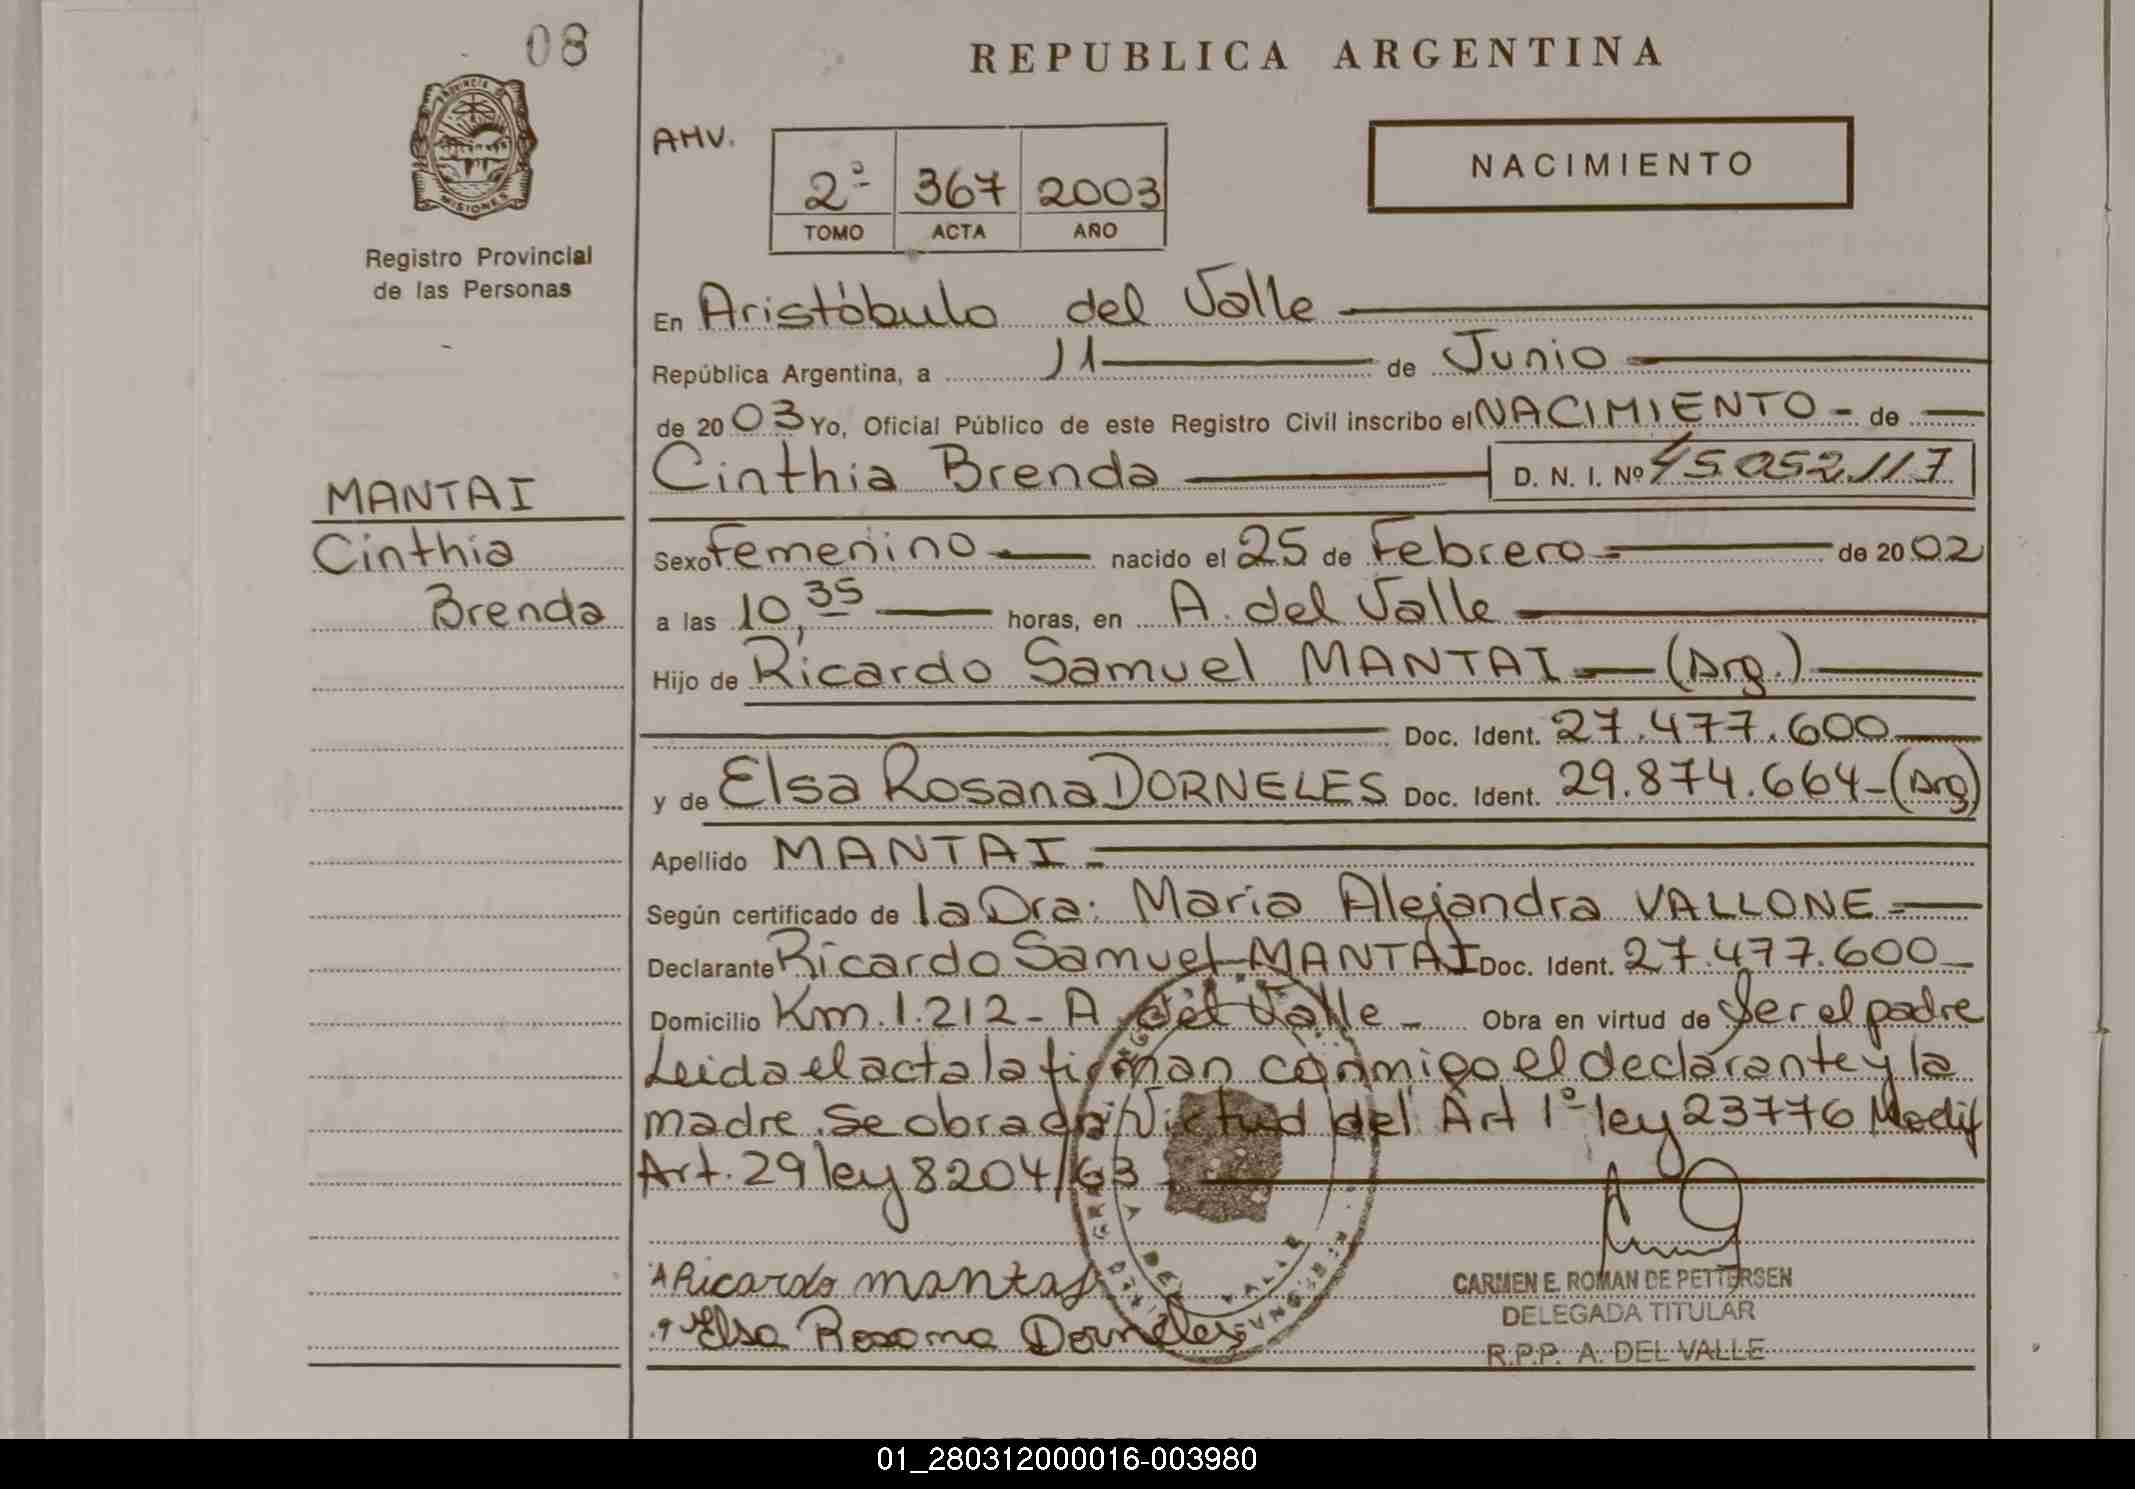 08
REPUBLICA ARGENTINA
PROVINCIA DE MISIONES
Registro Provincial
de las Personas
AHV.
2ª 367 2003
TOMO ACTA AÑO
NACIMIENTO
En Aristóbulo del Valle
República Argentina, a 11 de Junio
de 2003 Yo, Oficial Público de este Registro Civil inscribo el NACIMIENTO - de
MANTAI
Cinthia
Brenda
Cinthia Brenda D. N. I. Nº 45.052.117
Sexo Femenino nacido el 25 de Febrero de 2002
a las 10,35 horas, en A. del Valle
Hijo de Ricardo Samuel MANTAI (Arg.)
Doc. Ident. 27.477.600
y de Elsa Rosana DORNELES Doc. Ident. 29.874.664 - (Arg)
Apellido MANTAI
Según certificado de la Dra. Maria Alejandra VALLONE
Declarante Ricardo Samuel MANTAI Doc. Ident. 27.477.600
Domicilio Km. 1.212 - A. del Valle - Obra en virtud de Ser el padre
Leida el acta la firman conmigo el declarante y la
madre. Se obra en Virtud del Art 1º ley 23776 Modif
Art. 29 ley 8204/63
Ricardo mantai
Elsa Rosana Dorneles
CARMEN E. ROMAN DE PETTERSEN
DELEGADA TITULAR
R.P.P. A. DEL VALLE
01_280312000016-003980